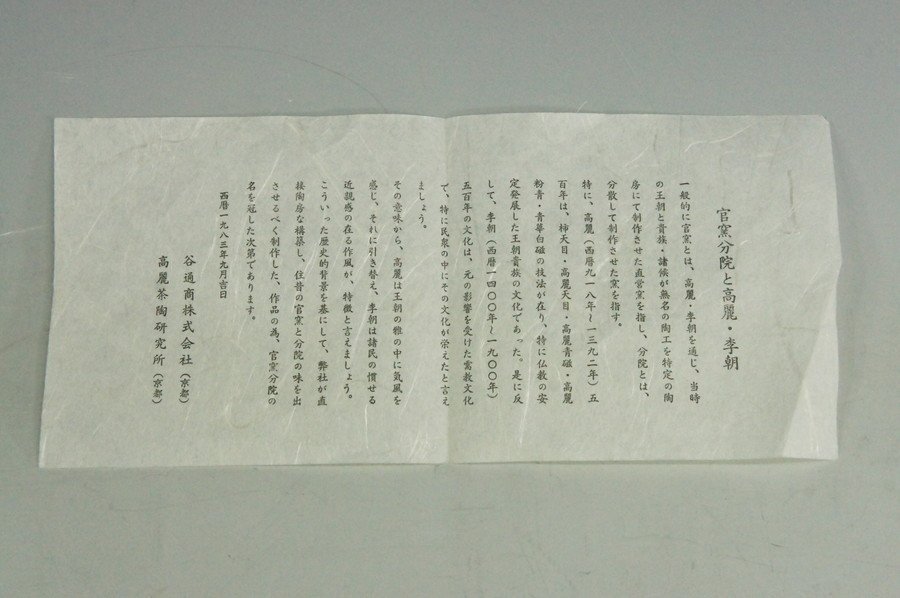 官窯分院と高麗・李朝
一般的に官窯とは、高麗・李朝を通じ、当時
の王朝と貴族・諸候が無名の陶工を特定の陶
房にて制作させた直営窯を指し、分院とは、
分散して制作させた窯を指す。
特に、高麗（西暦九一八年〜一三九二年）五
百年は、柿天目・高麗天目・高麗青磁・高麗
粉青・青華白磁の技法が在り、特に仏教の安
定発展した王朝貴族の文化であった。是に反
して、李朝（西暦一四〇〇年〜一九〇〇年）
五百年の文化は、元の影響を受けた儒教文化
で、特に民衆の中にその文化が栄えたと言え
ましょう。
その意味から、高麗は王朝の雅の中に気風を
感じ、それに引き替え、李朝は諸民の慣せる
近親感の在る作風が、特徴と言えましょう。
こういった歴史的背景を基にして、弊社が直
接陶房な構築し、往昔の官窯と分院の味を出
させるべく制作した、作品の為、官窯分院の
名を冠した次第であります。
西暦一九八三年九月吉日
谷通商株式会社（京都）
高麗茶陶研究所（京都）